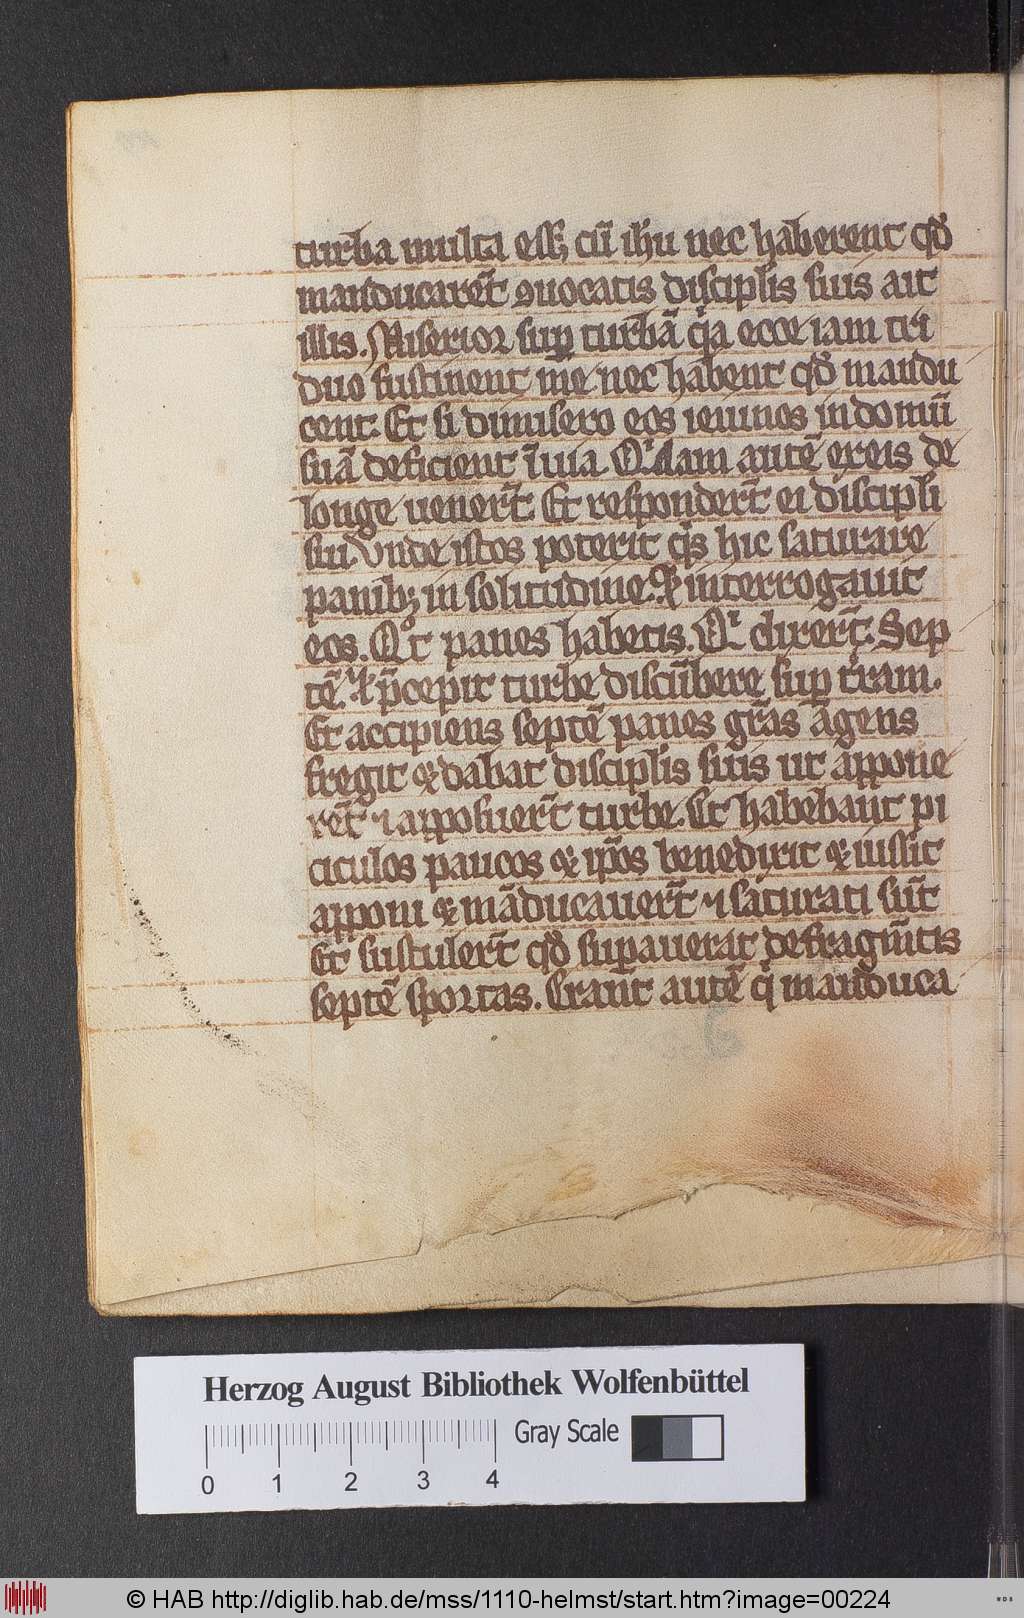 turba multa eſſ; cū ihu nec haberent qđ
manducarēt ꝯuocatis diſciplis ſuis ait
illis. Miſereor ſuꝑ turbā qͥa ecce iam tri
duo ſuſtinent me nec habent qđ mandu
cent. Et ſi dimiſero eos ieiunos in domū
ſuā deficient ī uia. Qͥdam autē exeis de
longe uenerūt. Et reſponderūt ei diſcipli
ſui. Vnde iſtos poterit qͥs hic ſaturare
panibꝫ in ſolitudine. Et interrogauit
eos. Qͦt panes habetis. Qͥ dixerūt. Sep
tē. Et p̄cepit turbe diſcūbere ſuꝑ tͤram.
Et accipiens ſeptē panes grās āgens
fregit & dabat diſciplis ſuis ut appone
rēt ⁊ appoſuerūt turbe. Et habebant pi
ſciculos paucos & ip̄os benedixit & iuſſit
apponi & māducauerūt ⁊ ſaturati ſūt
Et ſuſtulerūt qđ ſuꝑauerat de fragmītis
ſeptē ſportas. Erant autē qͥ manduca
Herzog August Bibliothek Wolfenbüttel
Gray Scale
0 1 2 3 4
© HAB http://diglib.hab.de/mss/1110-helmst/start.htm?image=00224